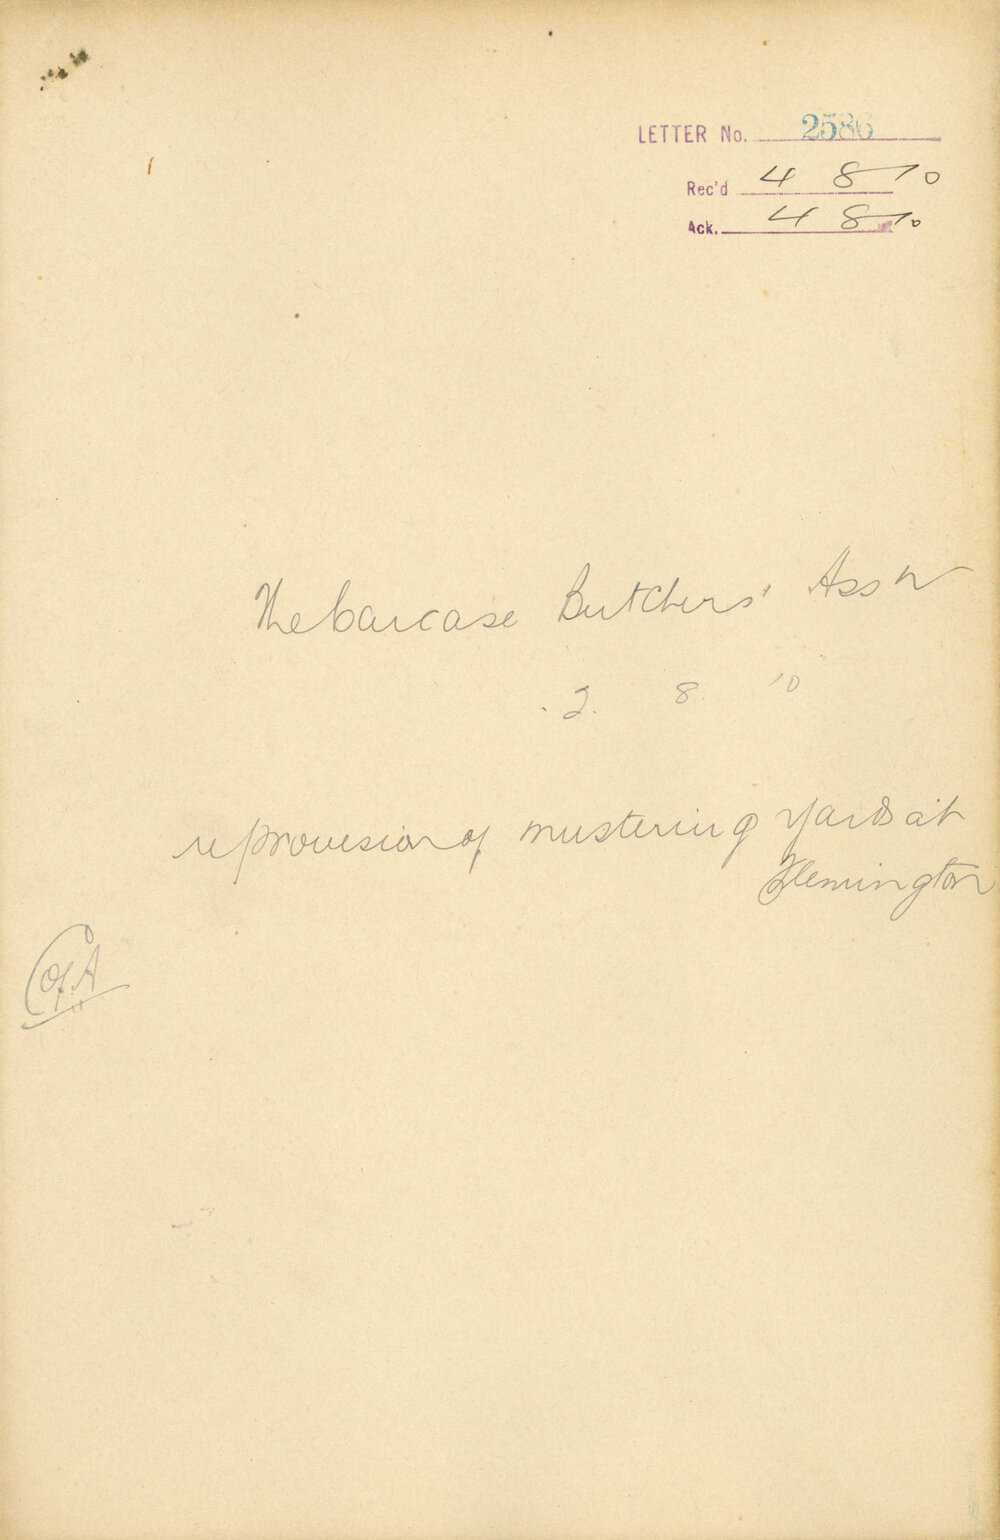 LETTER No. 2586
Rec'd 4 8 10
Ack. 4 8 10
The Carcase Butchers' Assn
2. 8. 10
re provision of mustering yards at
Flemington
C of A